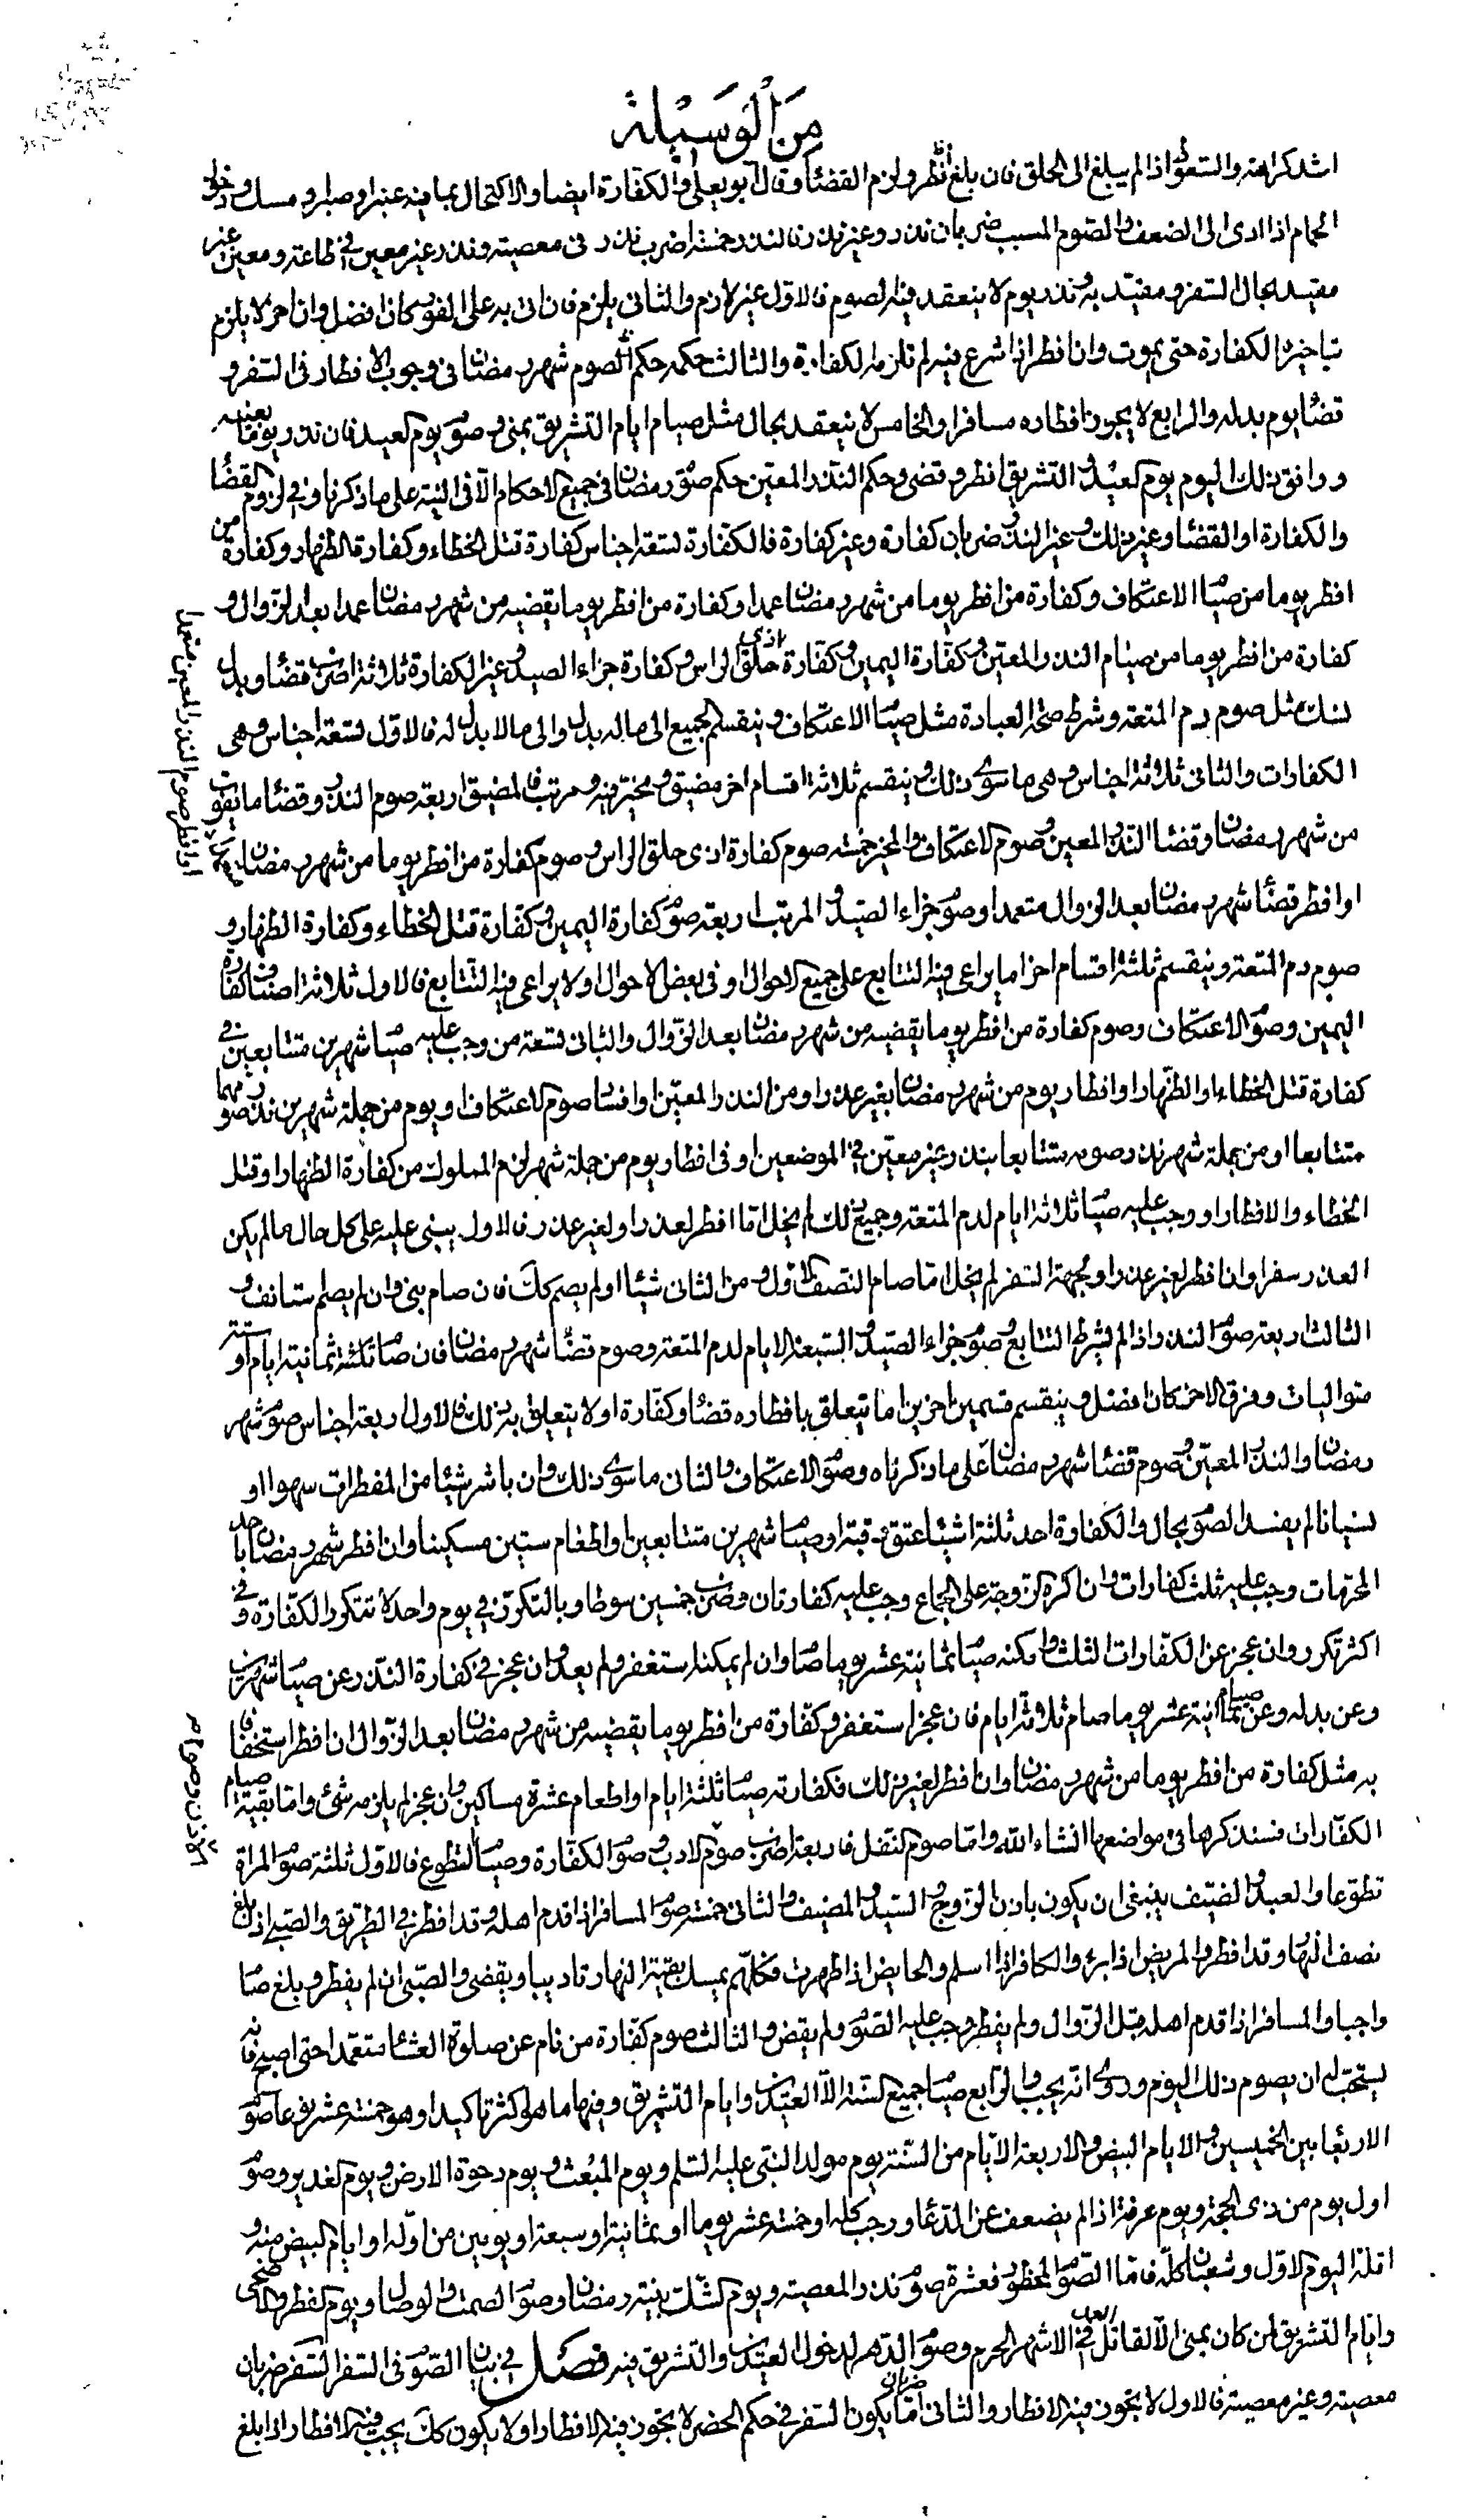 مِنَ الْوَسِيْلَة
اشد كراهة والسعوط اذا لم يبلغ الى الحلق فان بلغ افطر ولزم القضاء وقال ابو يعلى والكفارة ايضا والاكتحال بما فيه عنبر او صبر او مسك ودخول
الحمام اذا ادى الى الضعف والصوم المسبب ضربان نذر وغير نذر فالنذر خمسة اضرب نذر فى معصية ونذر غير معين فى طاعة ومعين غير
مقيد بحال السفر ومقيد به ونذر يوم لا ينعقد فيه الصوم فالاول غير لازم والثانى يلزم فان اتى به على الفور كان افضل وان اخر لا يلزم
بتاخيره الكفارة حتى يموت وان افطر اذا شرع فيه لم تلزمه الكفارة والثالث حكمه حكم الصوم شهر رمضان فى وجوب الافطار فى السفر و
قضاء يوم بدله والرابع لا يجوز افطاره مسافرا والخامس لا ينعقد بحال مثل صيام ايام التشريق بمنى وصوم يوم العيد فان نذر يوما بعينه
ووافق ذلك اليوم يوم العيد او التشريق افطر وقضى وحكم النذر المعين حكم صوم رمضان فى جميع الاحكام الا فى النية على ما ذكرنا وفى لزوم القضاء
والكفارة او القضاء وغير ذلك وغير النذر ضربان كفارة وغير كفارة فالكفارة تسعة اجناس كفارة قتل الخطاء وكفارة الظهار وكفارة من
افطر يوما من صيام الاعتكاف وكفارة من افطر يوما من شهر رمضان عمدا وكفارة من افطر يوما يقضيه من شهر رمضان عمدا بعد الزوال و
كفارة من افطر يوما من صيام النذر المعين وكفارة اليمين وكفارة اذى حلق الراس وكفارة جزاء الصيد وغير الكفارة ثلاثة اضرب قضاء وبدل
نسك مثل صوم دم المتعة وشرط صحة العبادة مثل صيام الاعتكاف وينقسم الجميع الى ما له بدل والى ما لا بدل له فالاول تسعة اجناس وهى
الكفارات والثانى ثلاثة اجناس وهى ما سوى ذلك وينقسم ثلاثة اقسام اخر مضيق ومخير فيه ومرتب فالمضيق اربعة صوم النذر وقضاء ما يفوت
من شهر رمضان وقضاء النذر المعين وصوم الاعتكاف والمخير خمسة صوم كفارة اذى حلق الراس وصوم كفارة من افطر يوما من شهر رمضان
او افطر قضاء شهر رمضان بعد الزوال متعمدا وصوم جزاء الصيد والمرتب اربعة صوم كفارة اليمين وكفارة قتل الخطاء وكفارة الظهار و
صوم دم المتعة وينقسم ثلثة اقسام اخر اما يراعى فيه التتابع على جميع الاحوال او فى بعض الاحوال او لا يراعى فيه التتابع فالاول ثلاثة اصناف كفارة
اليمين وصوم الاعتكاف وصوم كفارة من افطر يوما يقضيه من شهر رمضان بعد الزوال والثانى تسعة من وجب عليه صيام شهرين متتابعين فى
كفارة قتل الخطاء او الظهار او افطار يوم من شهر رمضان بغير عذر او من النذر المعين او افساد صوم الاعتكاف او يوم من جملة شهرين نذر صومهما
متتابعا او من جملة شهر نذر صومه متتابعا بنذر غير معين فى الموضعين او فى افطار يوم من جملة شهر لزم المملوك من كفارة الظهار او قتل
الخطاء والافطار او وجب عليه صيام ثلاثة ايام لدم المتعة وجميع ذلك لم يخل اما افطر لعذر او لغير عذر فالاول يبنى عليه على كل حال ما لم يكن
العذر سفرا وان افطر لغير عذر او بجهة السفر لم يخل اما صام النصف الاول ومن الثانى شيئا او لم يصم كك فان صام بنى وان لم يصم استانف و
الثالث اربعة صوم النذر اذا لم يشرط التتابع وصوم جزاء الصيد والسبعة الايام لدم المتعة وصوم قضاء شهر رمضان فان صام ثلثة ثمانية ايام او ستة
متواليات وفرق الاخر كان افضل وينقسم قسمين اخرين اما يتعلق بافطاره قضاء وكفارة او لا يتعلق به ذلك فالاول اربعة اجناس صوم شهر
رمضان والنذر المعين وصوم قضاء شهر رمضان على ما ذكرناه وصوم الاعتكاف والثانى ما سوى ذلك وان باشر شيئا من المفطرات سهوا او
نسيانا لم يفسد الصوم بحال والكفارة احد ثلثة اشياء عتق رقبة او صيام شهرين متتابعين او اطعام ستين مسكينا وان افطر شهر رمضان باحد
المحرمات وجب عليه ثلث كفارات وان اكره الزوجة على الجماع وجب عليه كفارتان وضرب خمسين سوطا وبالتكرر فى يوم واحد لا تتكرر الكفارة وفى
اكثر تكرر وان عجز عن الكفارات الثلث وامكنه صيام ثمانية عشر يوما صام وان لم يمكنه استغفر ولم يعد وان عجز فى كفارة النذر عن صيام شهرين
وعن بدله وعن صيام ثمانية عشر يوما صام ثلاثة ايام فان عجز استغفر وكفارة من افطر يوما يقضيه من شهر رمضان بعد الزوال ان افطر استخفافا
به مثل كفارة من افطر يوما من شهر رمضان وان افطر لغير ذلك فكفارته صيام ثلثة ايام او اطعام عشرة مساكين وان عجز لم يلزمه شئ واما بقية صيام
الكفارات فسنذكرها فى مواضعها انشاء الله واما صوم النفل فاربعة اضرب صوم الادب وصوم الكفارة وصيام التطوع فالاول ثلثة صوم المراة
تطوعا والعبد والضيف ينبغى ان يكون باذن الزوج والسيد والمضيف والثانى خمسة صوم المسافر اذا قدم اهله وقد افطر فى الطريق والصبى اذا بلغ
نصف النهار وقد افطر والمريض اذا برء والكافر اذا اسلم والحايض اذا طهرت فكلهم يمسك بقية النهار تاديبا ويقضى والصبى ان لم يفطر وبلغ صام
واجبا والمسافر اذا قدم اهله قبل الزوال ولم يفطر وجب عليه الصوم ولم يقض والثالث صوم كفارة من نام عن صلوة العشاء متعمدا حتى اصبح فانه
يستحب له ان يصوم ذلك اليوم وروى انه يجب والرابع صيام جميع السنة الا العيدين وايام التشريق وفيها ما هو اكثر تاكيدا وهو خمسة عشر نوعا صوم
الاربعاء بين الخميسين والايام البيض والاربعة الايام من السنة يوم مولد النبى عليه السلم ويوم المبعث ويوم دحوة الارض ويوم الغدير وصوم
اول يوم من ذى الحجة ويوم عرفة اذا لم يضعف عن الدعاء ورجب كله او خمسة عشر يوما او ثمانية او سبعة او يومين من اوله او ايام البيض منه و
اقله اليوم الاول وشعبان كله فاما الصوم المحظور فعشرة صوم نذر المعصية ويوم الشك بنية رمضان وصوم الصمت والوصال ويوم الفطر والاضحى
وايام التشريق لمن كان بمنى الا القاتل فى الاشهر الحرم وصوم الدهر لدخول العيدين والتشريق فيه فصل فى بيان الصوم فى السفر السفر ضربان
معصية وغير معصية فالاول لا يجوز فيه الافطار والثانى ضربان اما يكون السفر فى حكم الحضر لا يجوز فيه الافطار او لا يكون كك يجب فيه الافطار اذا بلغ